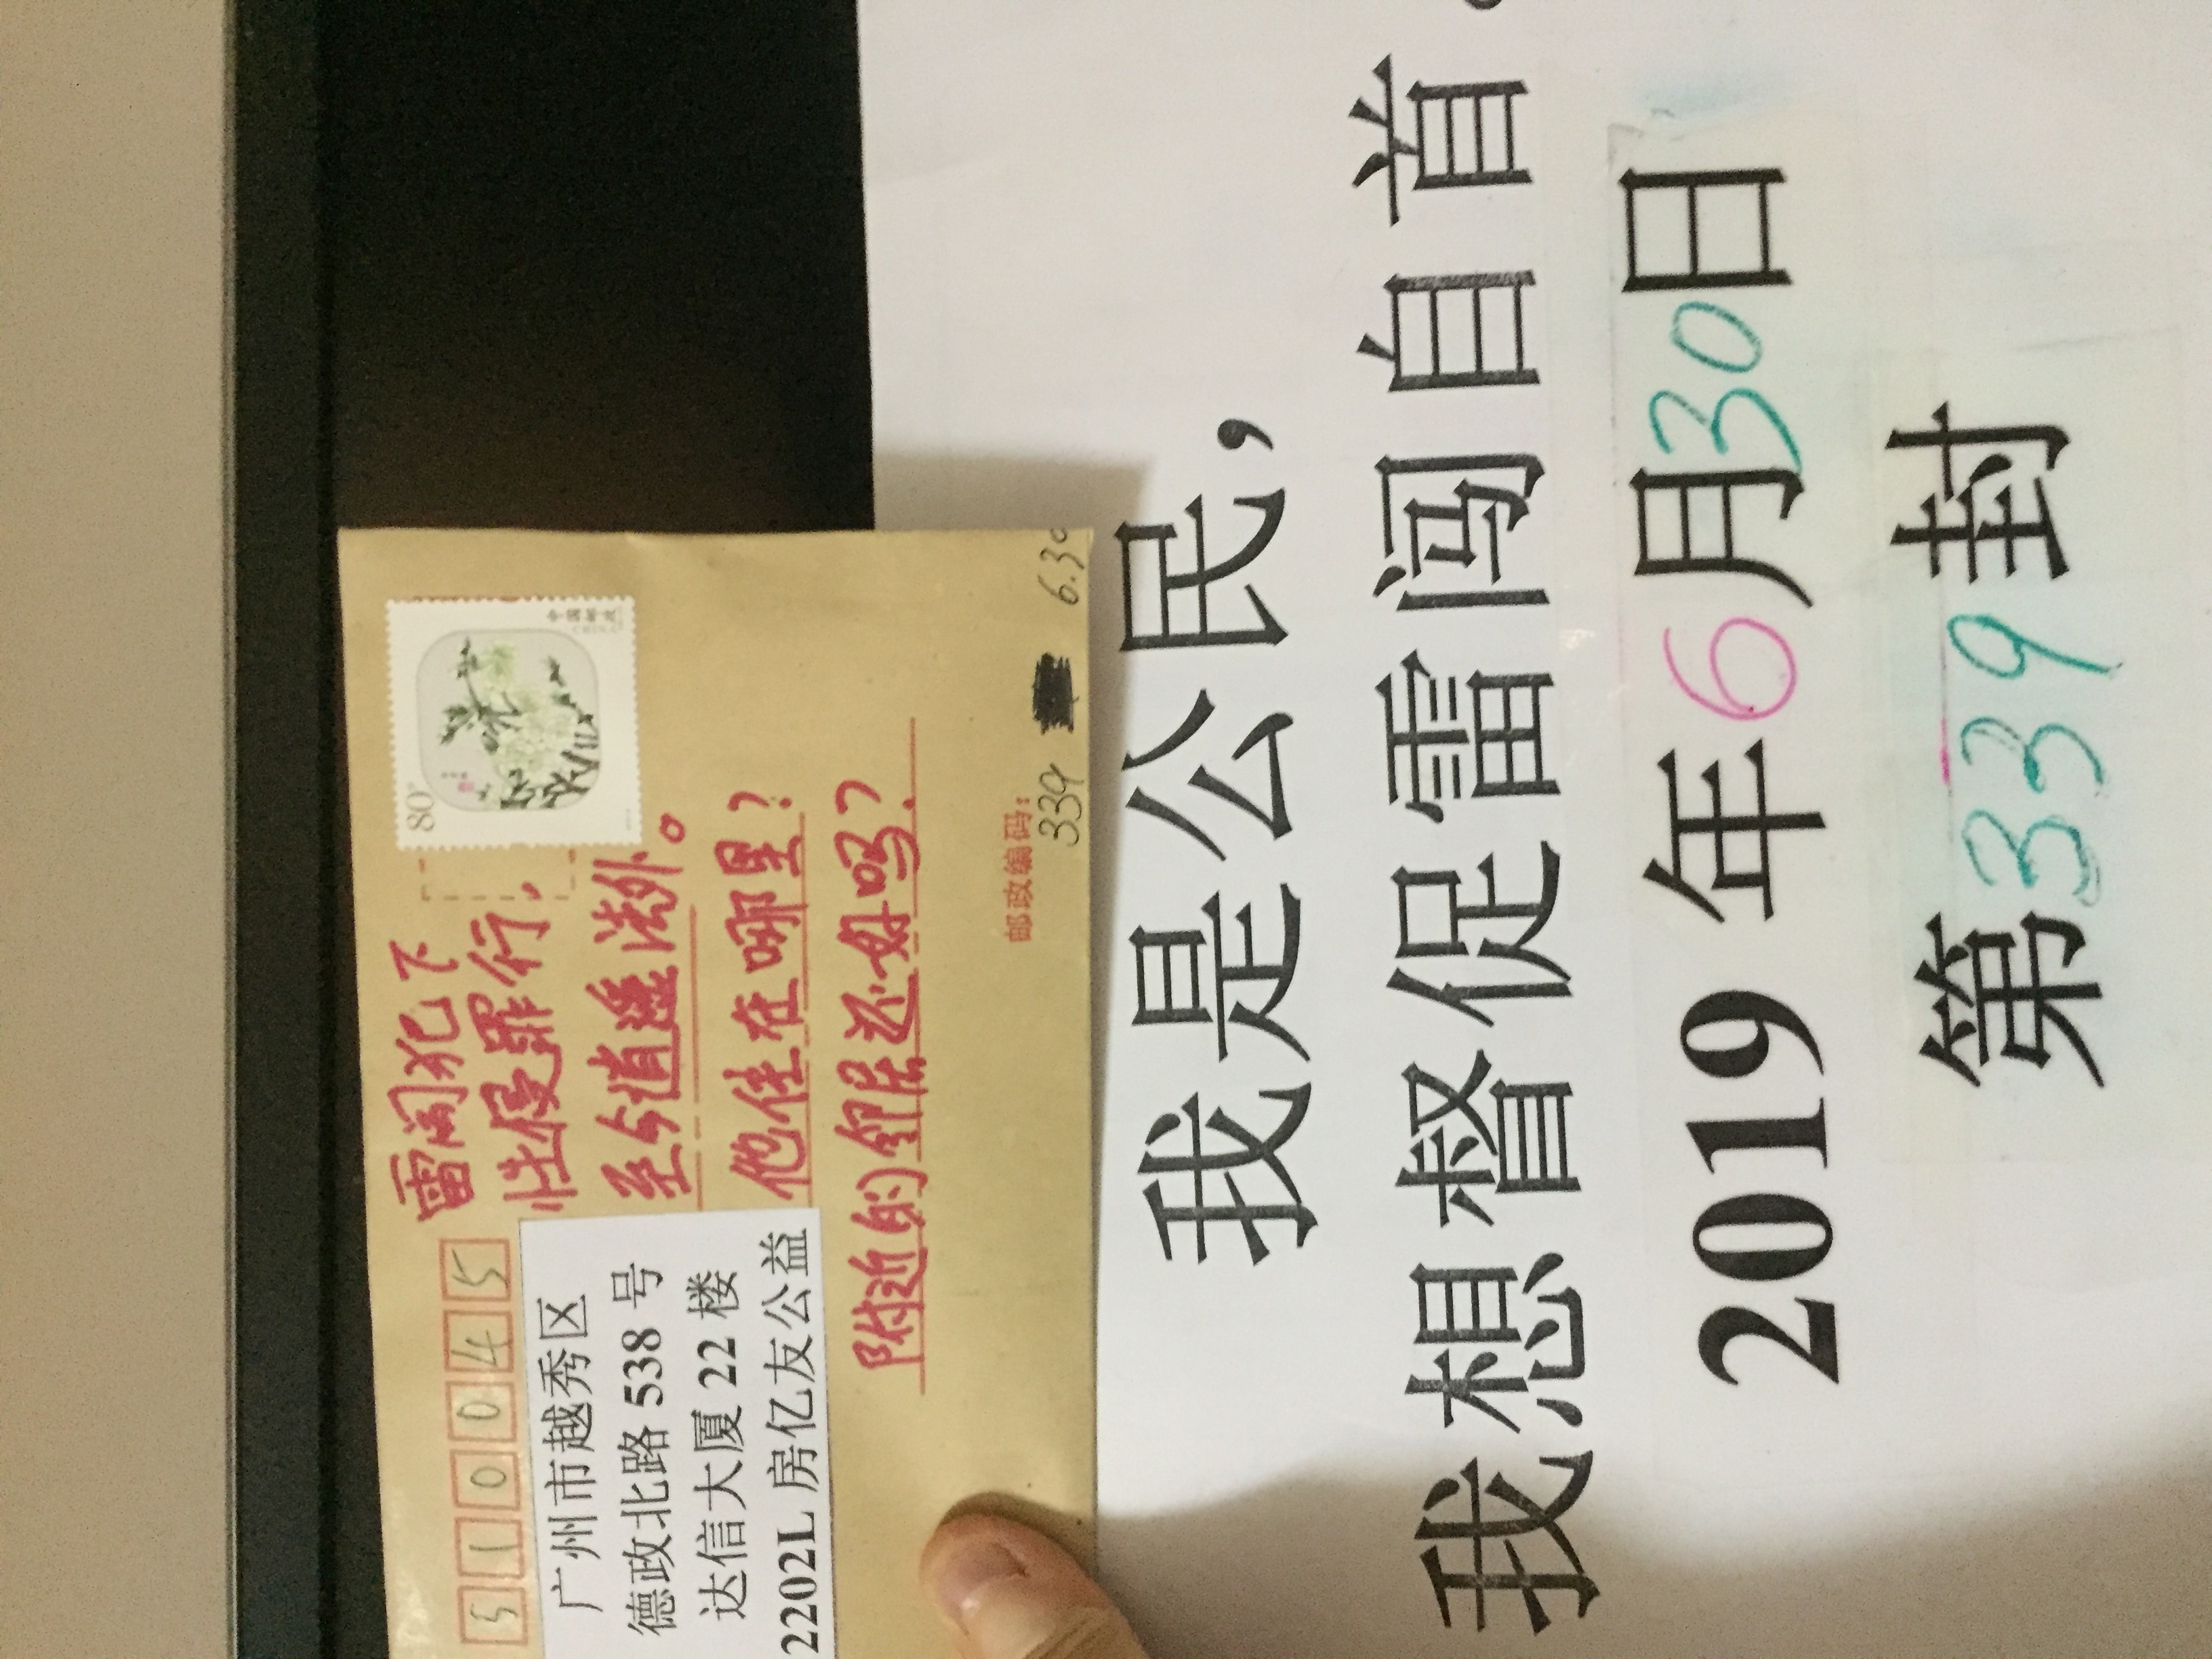 510045
广州市越秀区
德政北路 538 号
达信大厦 22 楼
2202L 房亿友公益
雷闯犯下
性侵罪行,
至今逍遥法外。
他住在哪里?
附近的邻居还好吗?
80
中国邮政
邮政编码:
339
6.30
我是公民,
我想督促雷闯自首。
2019 年6月30日
第339封